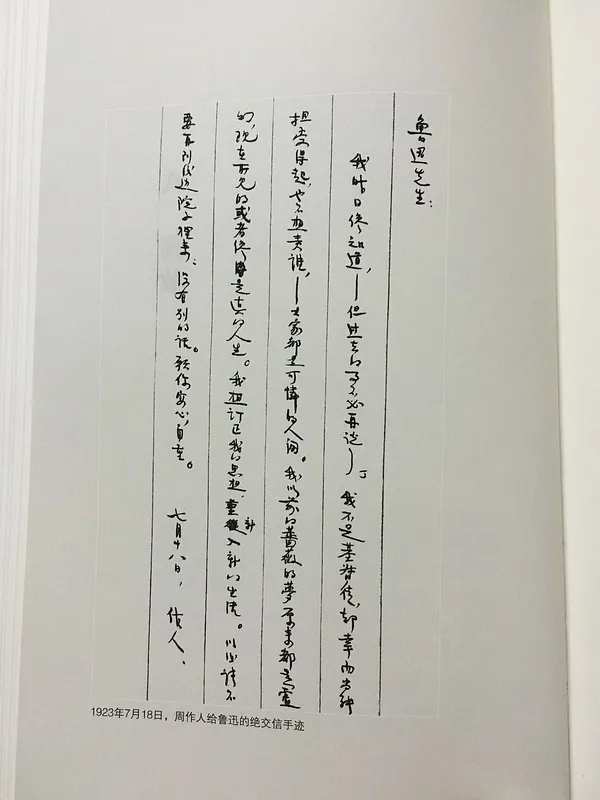 魯迅先生：
我昨日纔知道，—但過去的事不必再说了。我不是基督徒，却幸而尚能
担受得起，也不想责谁，—大家都是可憐的人间。我以前的薔薇的夢原来都是虚
幻，现在所见的或者纔是真的人生。我想订正我的思想，重新入新的生活。以後请不
要再到後边院子裡来，没有别的话。愿你安心，自重。 七月十八日，作人。
1923年7月18日，周作人给鲁迅的绝交信手迹